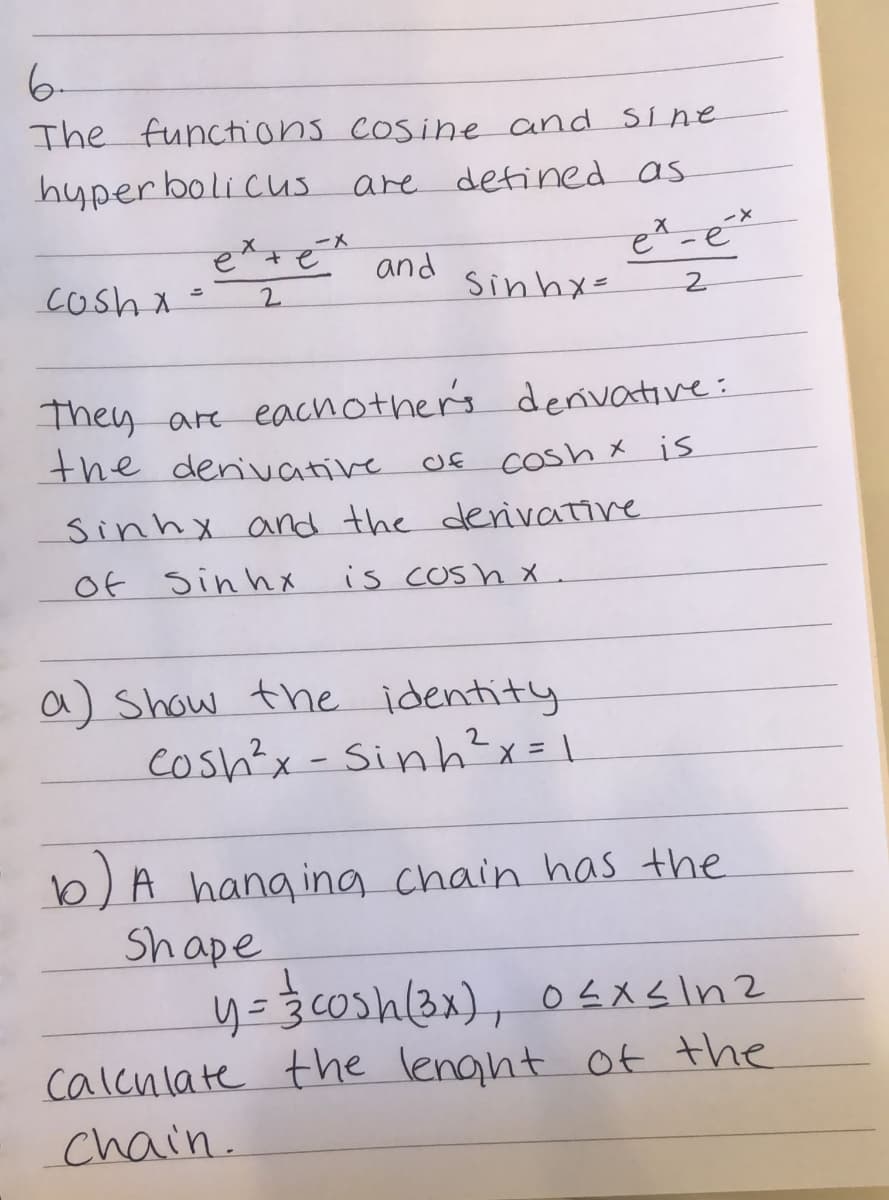 6.
The functions cosine and sine
hyperbolicus are defined as
cosh x = (e^x + e^-x)/2 and sinhx = (e^x - e^-x)/2
They are eachother's derivative:
the derivative of cosh x is
sinhx and the derivative
of sinhx is cosh x.
a) Show the identity
cosh²x - sinh²x = 1
b) A hanging chain has the
Shape
y = 1/3 cosh(3x), 0 ≤ x ≤ ln 2
calculate the lenght of the
chain.